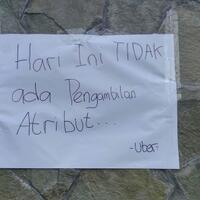 Hari Ini TIDAK
ada Pengambilan
Atribut...
-Uber-